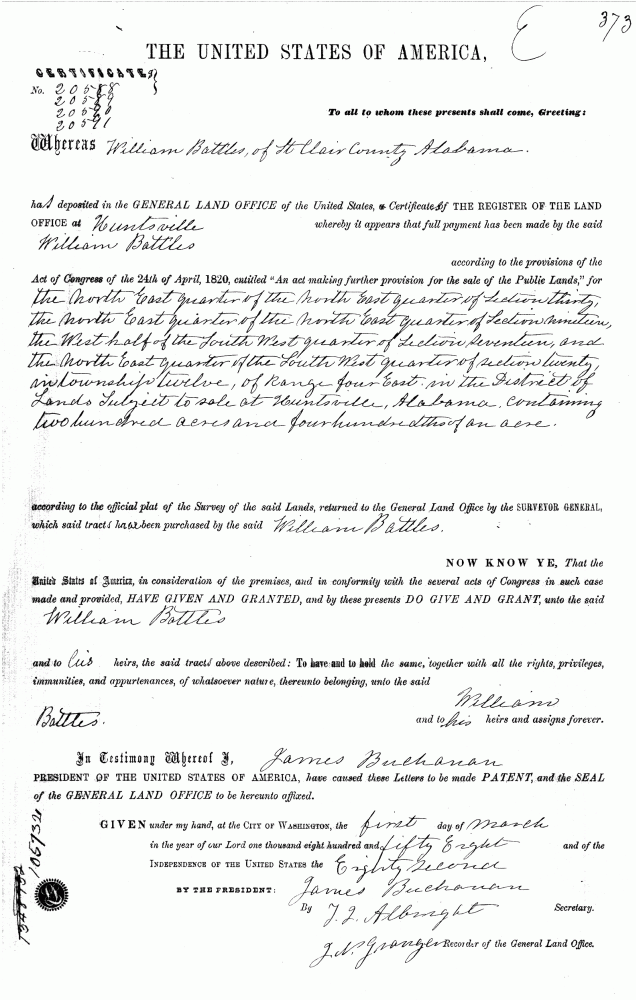 E 373
THE UNITED STATES OF AMERICA,
CERTIFICATES
No. 20588
20589
20590
20591
To all to whom these presents shall come, Greeting:
Whereas William Battles, of St Clair County Alabama.
has deposited in the GENERAL LAND OFFICE of the United States, a Certificate of THE REGISTER OF THE LAND
OFFICE at Huntsville whereby it appears that full payment has been made by the said
William Battles
according to the provisions of the
Act of Congress of the 24th of April, 1820, entitled "An act making further provision for the sale of the Public Lands," for
the North East quarter of the North East quarter of Section thirty,
the North East quarter of the North East quarter of Section nineteen,
the West half of the South West quarter of Section seventeen, and
the North East quarter of the South West quarter of section twenty,
in township twelve, of Range four East, in the District of
Lands Subject to sale at Huntsville, Alabama, containing
two hundred acres and four hundredths of an acre.
according to the official plat of the Survey of the said Lands, returned to the General Land Office by the SURVEYOR GENERAL,
which said tracts have been purchased by the said William Battles.
NOW KNOW YE, That the
United States of America, in consideration of the premises, and in conformity with the several acts of Congress in such case
made and provided, HAVE GIVEN AND GRANTED, and by these presents DO GIVE AND GRANT, unto the said
William Battles
and to his heirs, the said tracts above described: To have and to hold the same, together with all the rights, privileges,
immunities, and appurtenances, of whatsoever nature, thereunto belonging, unto the said
William
Battles. and to his heirs and assigns forever.
In Testimony Whereof I, James Buchanan
PRESIDENT OF THE UNITED STATES OF AMERICA, have caused these Letters to be made PATENT, and the SEAL
of the GENERAL LAND OFFICE to be hereunto affixed.
GIVEN under my hand, at the CITY OF WASHINGTON, the first day of March
in the year of our Lord one thousand eight hundred and fifty Eight and of the
INDEPENDENCE OF THE UNITED STATES the Eighty Second
BY THE PRESIDENT: James Buchanan
By T. J. Albright Secretary.
J. N. Granger Recorder of the General Land Office.